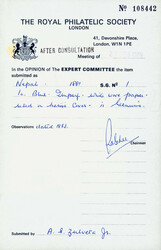 No 108442
THE ROYAL PHILATELIC SOCIETY
LONDON
41, Devonshire Place,
London, W1N 1PE
AFTER CONSULTATION
Meeting of
In the OPINION of The EXPERT COMMITTEE the item
submitted as
Nepal 1881 S.G. No 1
1a Blue Imperf white wove paper
used on native cover - is Genuine.
Observations dated 1882.
Chairman
Submitted by A. A. Jr.